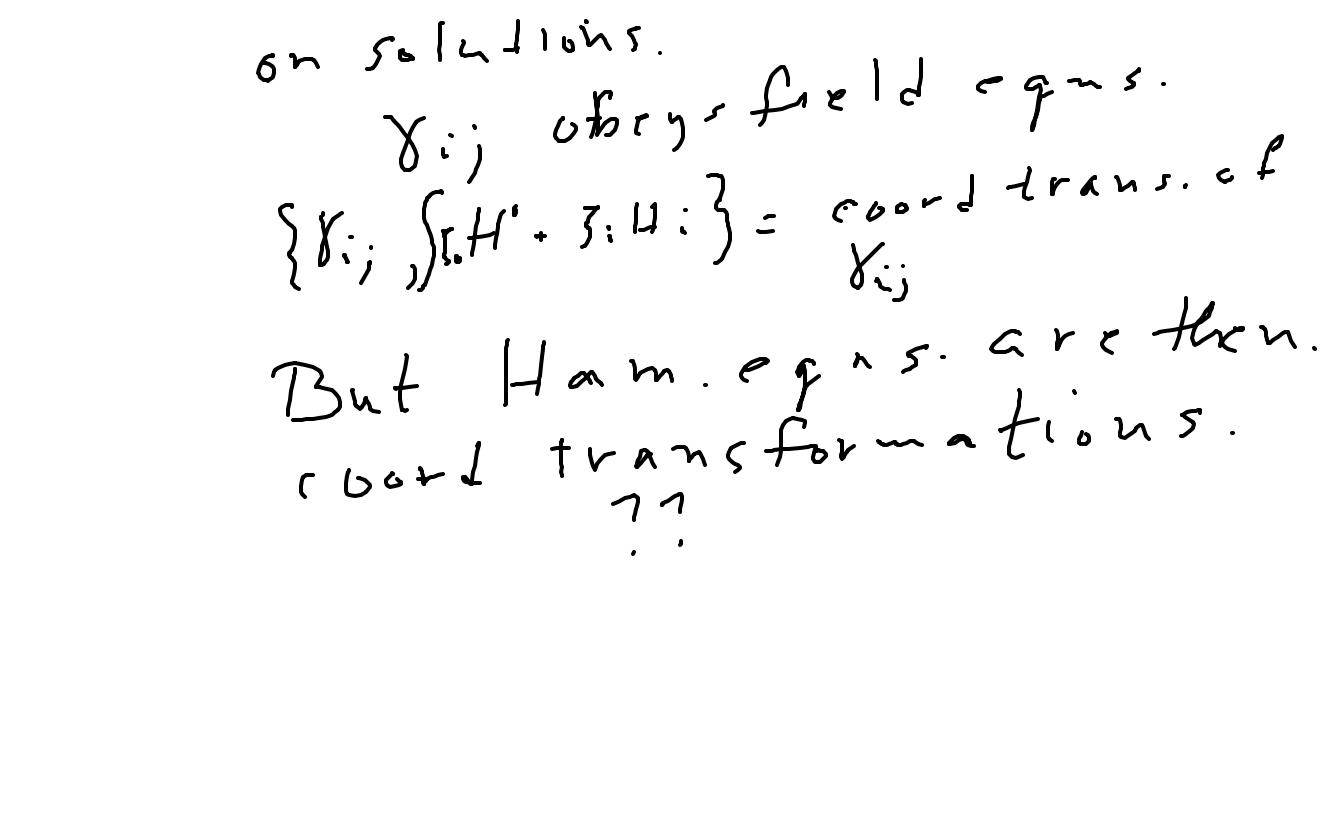 on solutions.
γij obeys field eqns.
{γij, ∫ξ.H' + ξiHi} = coord trans. of
γij
But Ham. eqns. are then.
coord transformations.
??